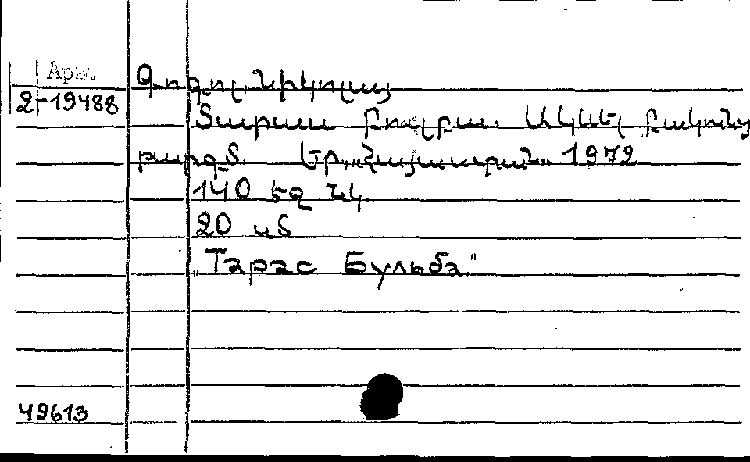 Арм.
2-19488
Գոգոլ, Նիկոլայ
Տարաս Բուլբա. Ակսել Բակունց
թարգմ. Եր., „Հայաստան„ 1972
140 եջ նկ.
20 սմ
„Тарас Бульба"
49613